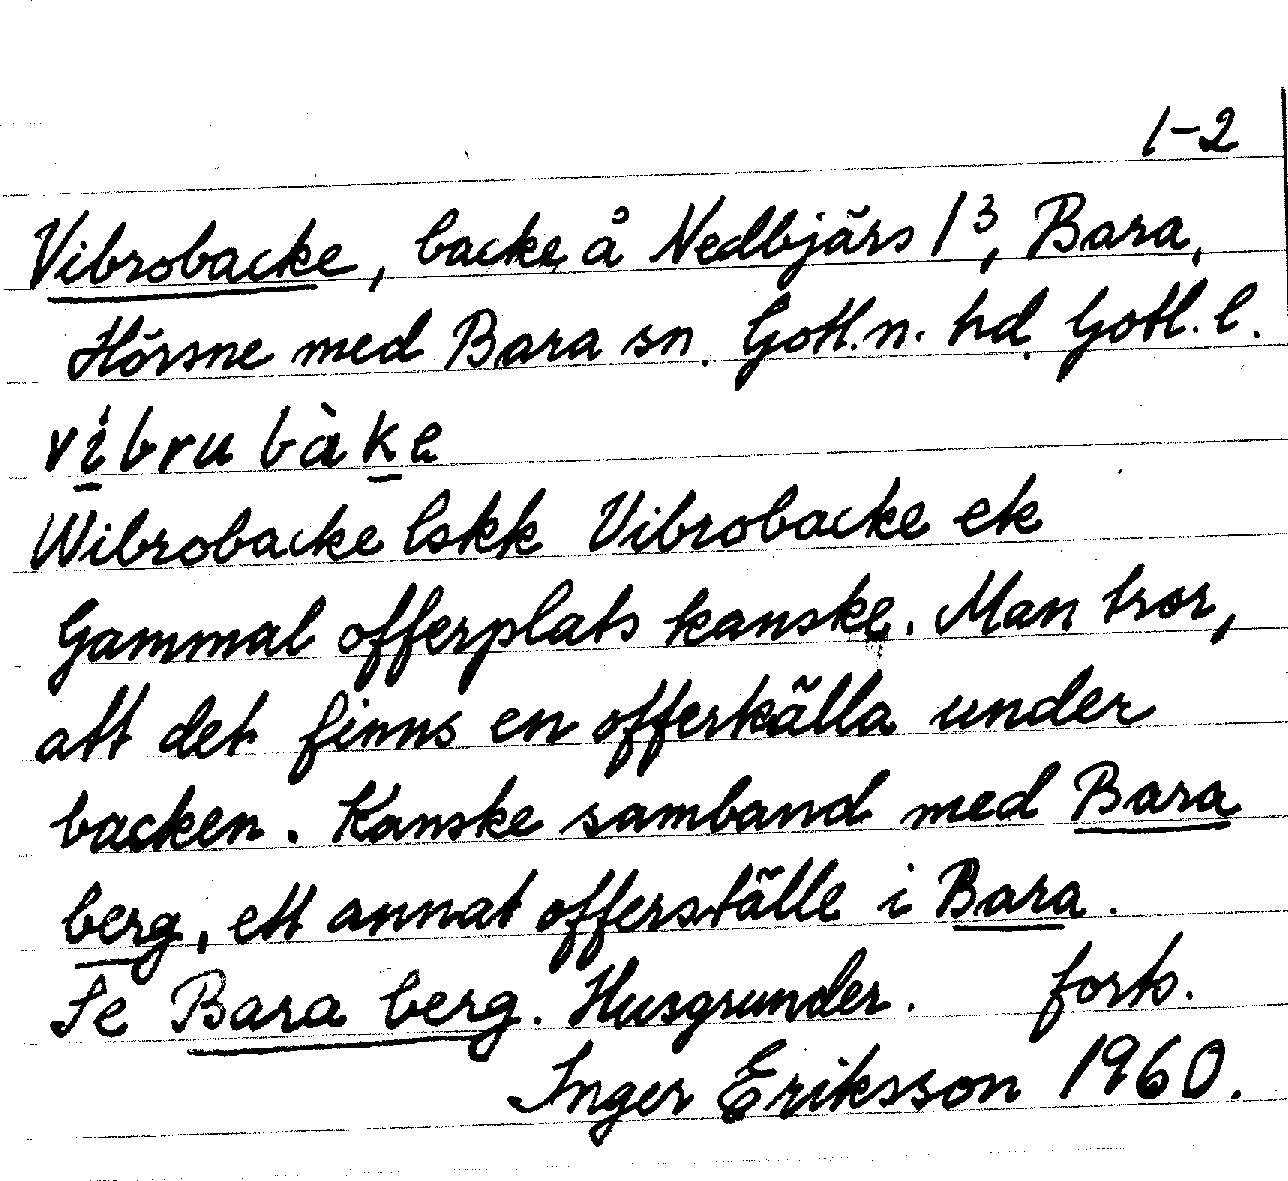 1-2
Vibrobacke, backe å Nedbjärs 1³, Bara,
Hörsne med Bara sn. Gotl.n. hd. Gotl. l.
vibru bàke
Wibrobacke lskk Vibrobacke ek
Gammal offerplats kanske. Man tror,
att det finns en offerkälla under
backen. Kanske samband med Bara
berg, ett annat offerställe i Bara.
Se Bara berg. Husgrunder. forts.
Inger Eriksson 1960.